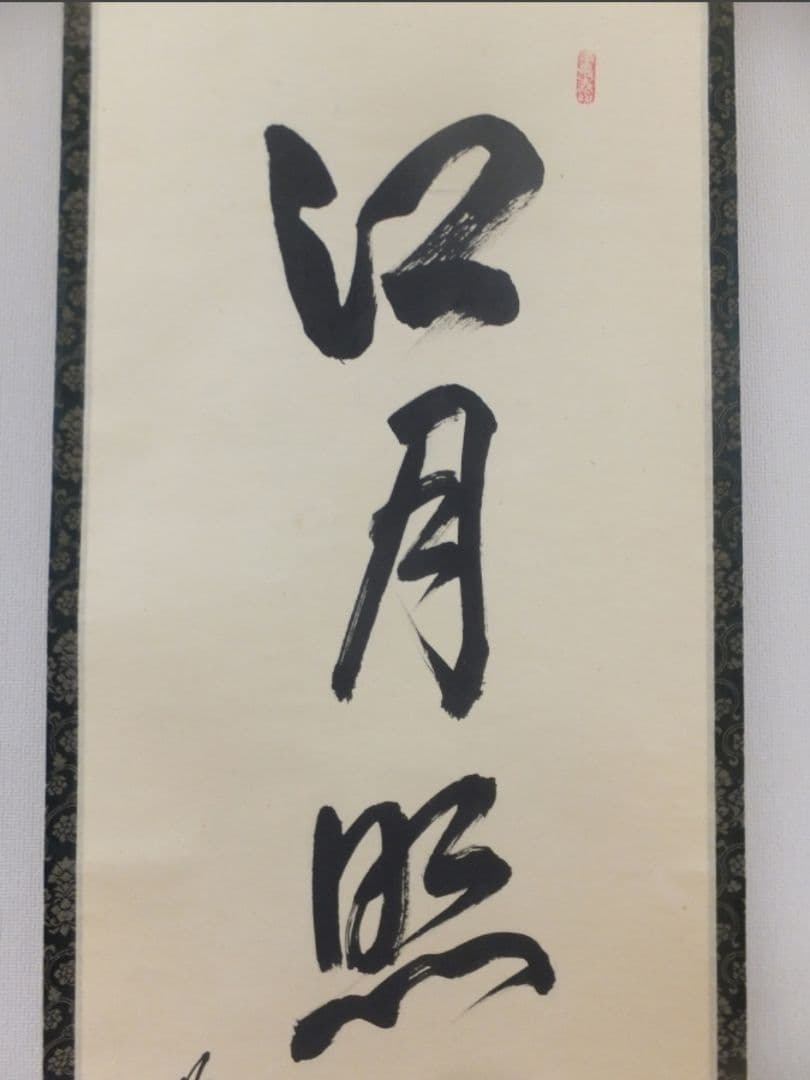 江月照